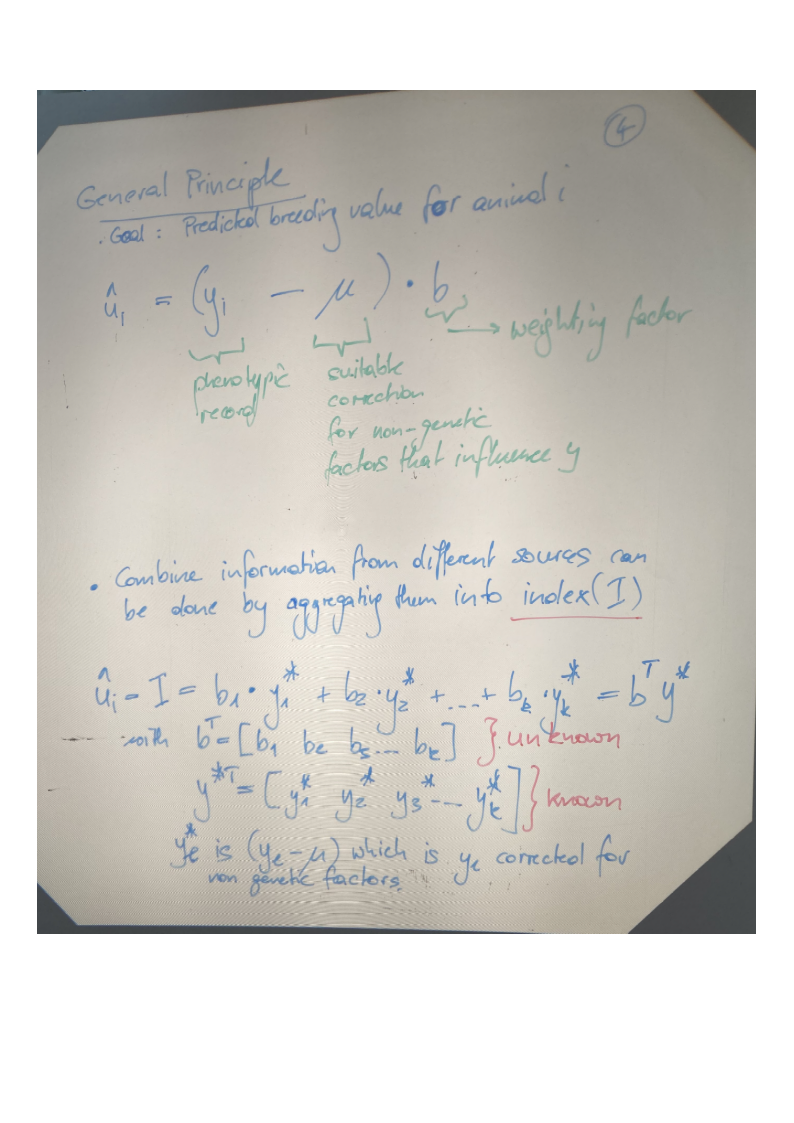 4
General Principle
. Goal : Predicted breeding value for animal i
û_i = (y_i − μ) · b
→ weighting factor
phenotypic
record
suitable
correction
for non-genetic
factors that influence y
• Combine information from different sources can
be done by aggregating them into index (I)
û_i = I = b_1 · y_1^* + b_2 · y_2^* + ... + b_k · y_k^* = b^T y^*
with b^T = [b_1 b_2 b_3 ... b_k] } unknown
y^{*T} = [y_1^* y_2^* y_3^* ... y_k^*] } known
y_e^* is (y_e − μ) which is y_e corrected for
non genetic factors.